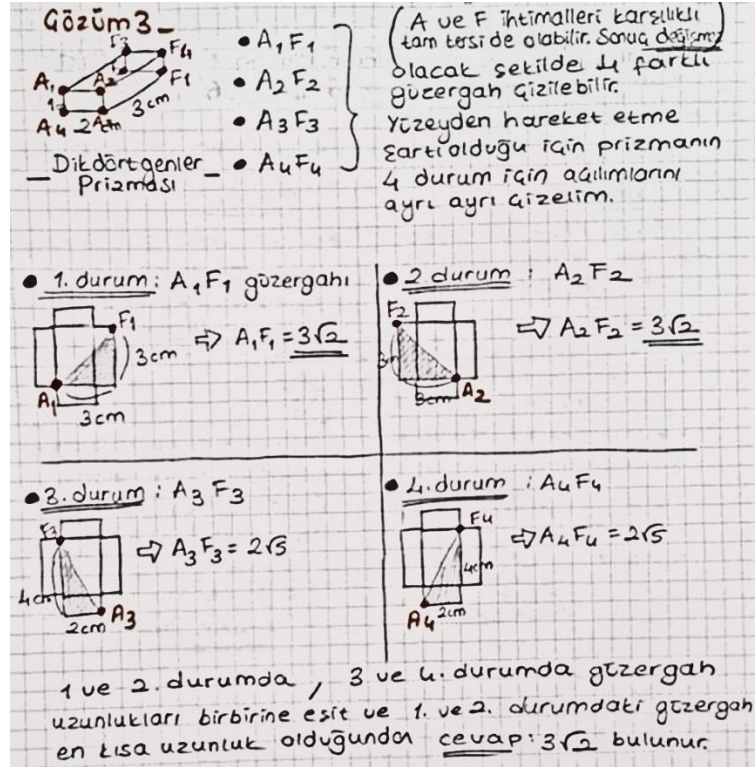 Çözüm 3_
F3 F4
A1 A2 F1
1 3cm
A4 2cm
_ Dikdörtgenler _
Prizması
• A1F1
• A2F2
• A3F3
• A4F4
A ve F ihtimalleri karşılıklı
tam tersi de olabilir. Sonuç değişmez
olacak şekilde 4 farklı
güzergah çizilebilir.
Yüzeyden hareket etme
şartı olduğu için prizmanın
4 durum için açılımlarını
ayrı ayrı çizelim.
• 1. durum: A1F1 güzergahı
F1
⇨ A1F1 = 3√2
3cm
A1
3cm
• 2. durum : A2F2
F2
⇨ A2F2 = 3√2
3cm A2
• 3. durum : A3F3
F3
⇨ A3F3 = 2√5
4cm
2cm A3
• 4. durum : A4F4
F4
⇨ A4F4 = 2√5
4cm
A4 2cm
1 ve 2. durumda , 3 ve 4. durumda güzergah
uzunlukları birbirine eşit ve 1. ve 2. durumdaki güzergah
en kısa uzunluk olduğundan cevap: 3√2 bulunur.